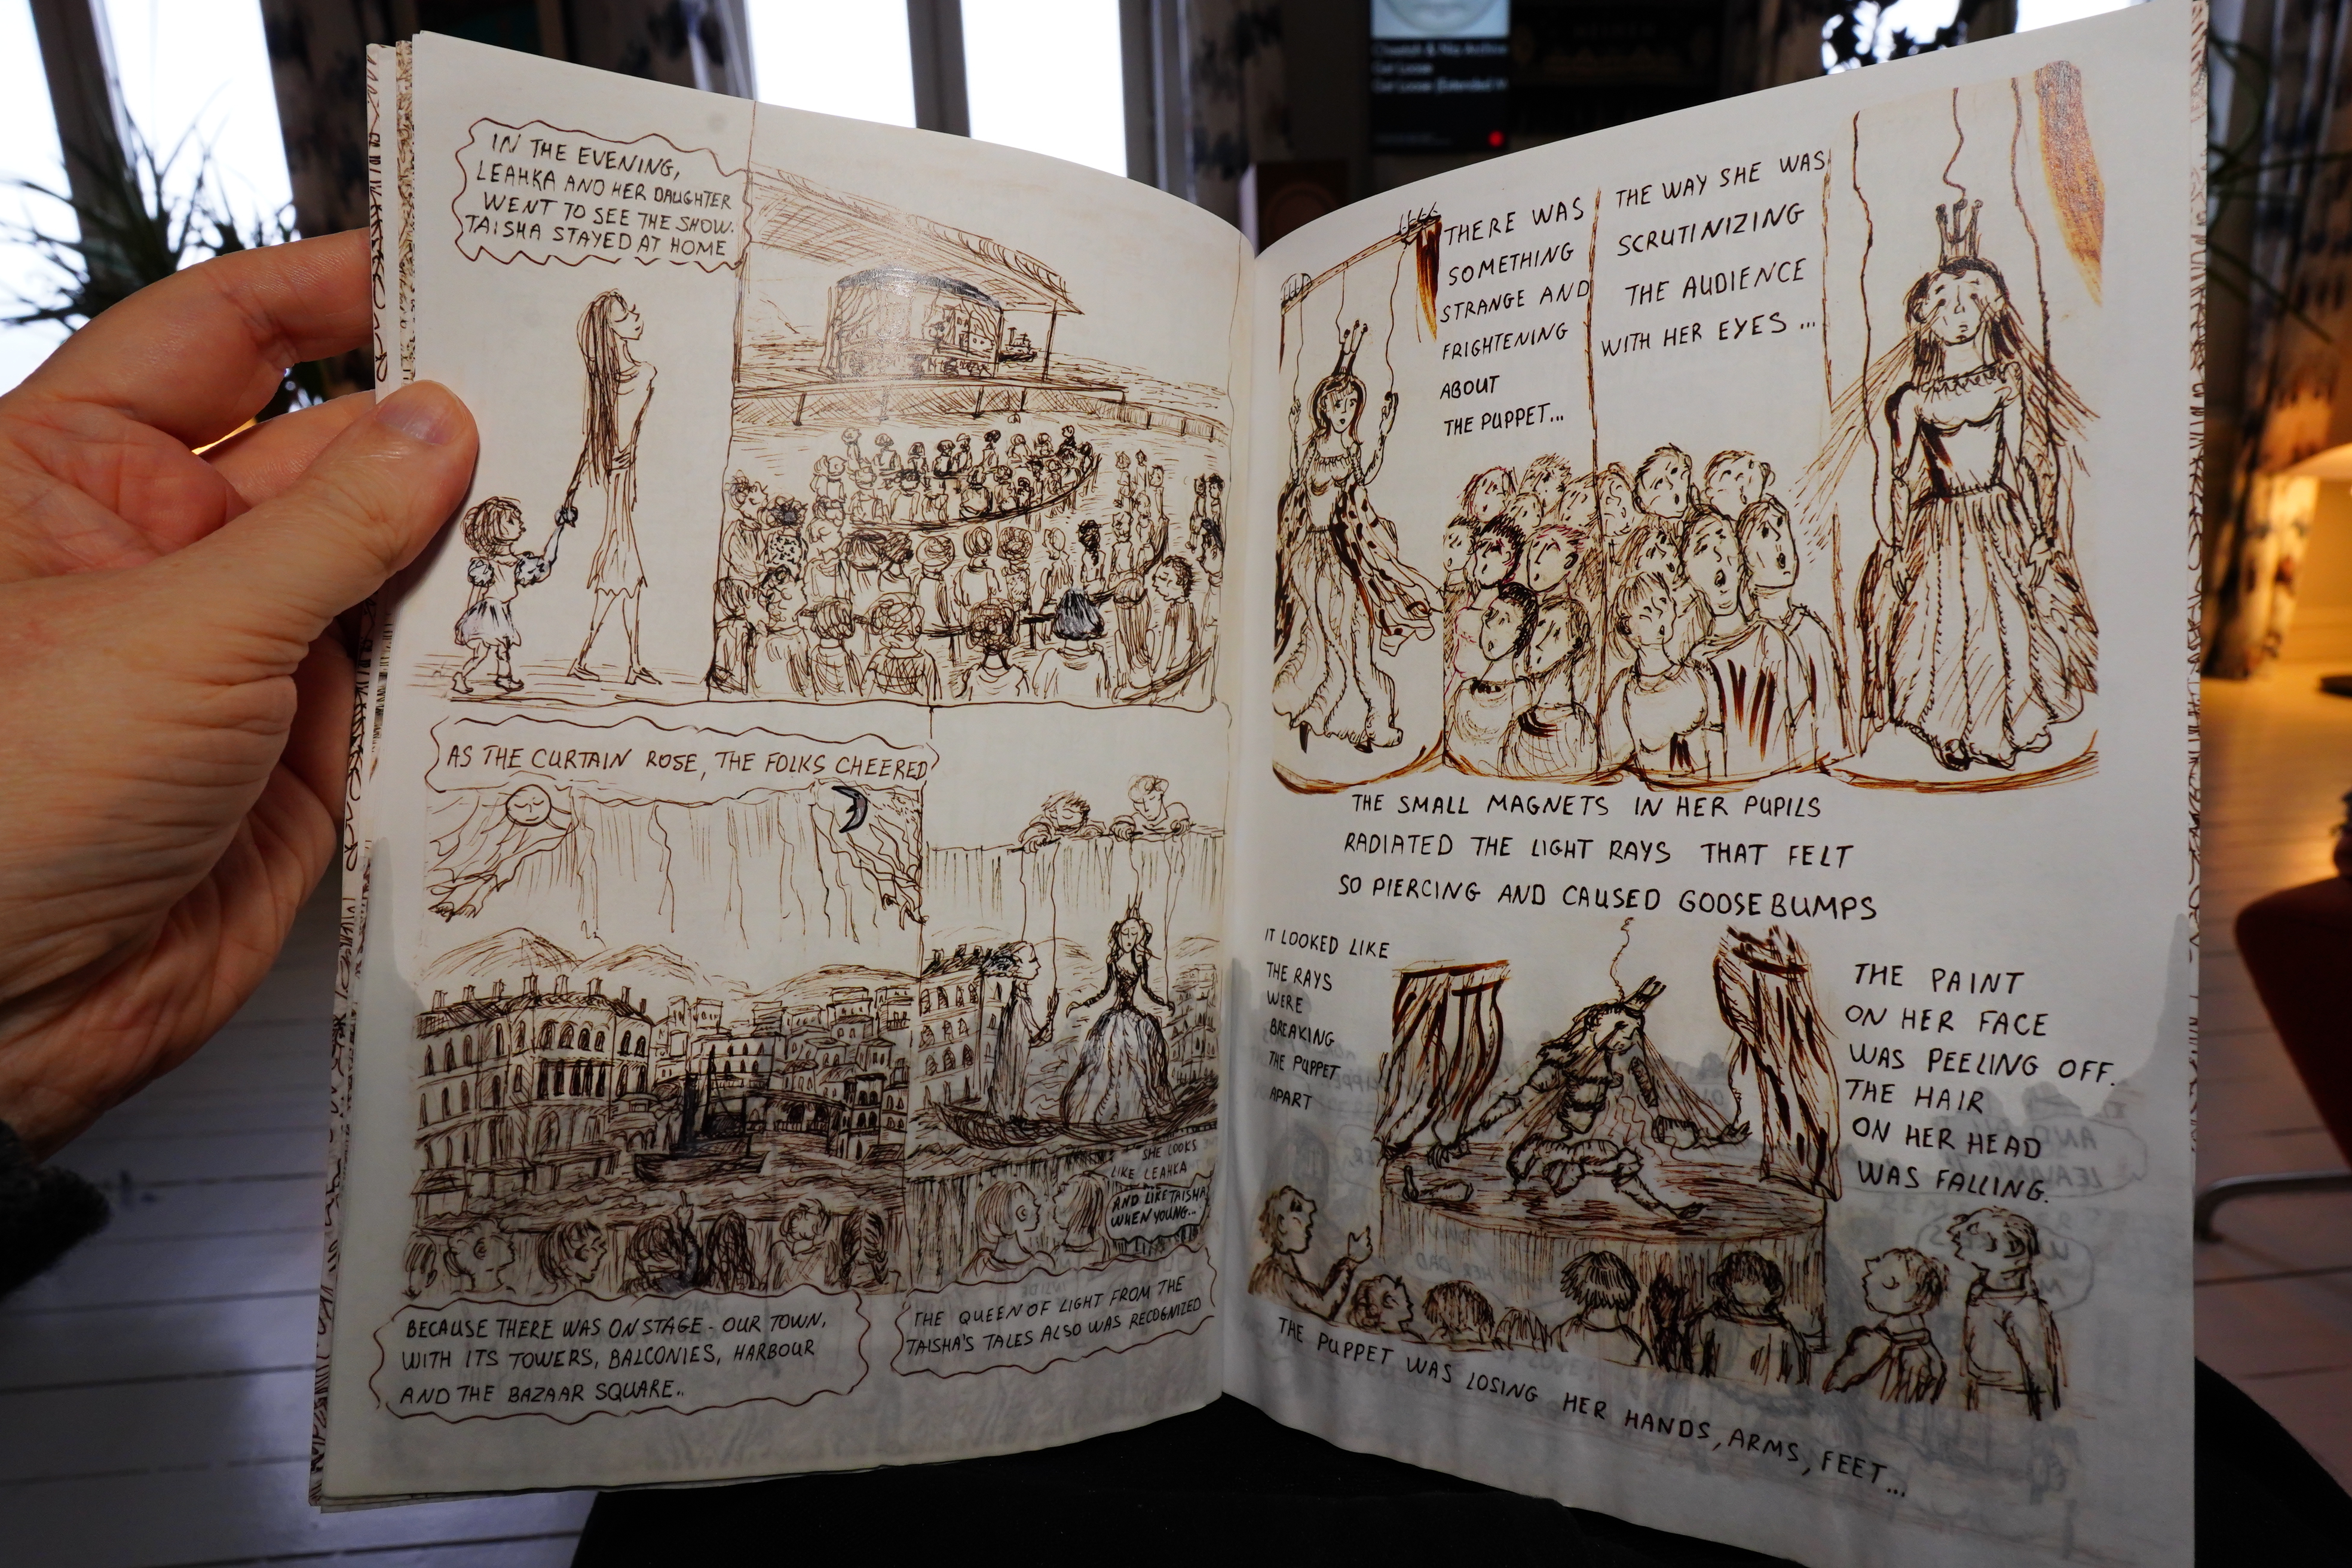 IN THE EVENING,
LEAHKA AND HER DAUGHTER
WENT TO SEE THE SHOW.
TAISHA STAYED AT HOME
AS THE CURTAIN ROSE, THE FOLKS CHEERED
SHE LOOKS
LIKE LEAHKA
AND LIKE TAISHA
WHEN YOUNG...
BECAUSE THERE WAS ON STAGE - OUR TOWN,
WITH ITS TOWERS, BALCONIES, HARBOUR
AND THE BAZAAR SQUARE..
THE QUEEN OF LIGHT FROM THE
TAISHA'S TALES ALSO WAS RECOGNIZED
THERE WAS
SOMETHING
STRANGE AND
FRIGHTENING
ABOUT
THE PUPPET...
THE WAY SHE WAS
SCRUTINIZING
THE AUDIENCE
WITH HER EYES ...
THE SMALL MAGNETS IN HER PUPILS
RADIATED THE LIGHT RAYS THAT FELT
SO PIERCING AND CAUSED GOOSEBUMPS
IT LOOKED LIKE
THE RAYS
WERE
BREAKING
THE PUPPET
APART
THE PAINT
ON HER FACE
WAS PEELING OFF.
THE HAIR
ON HER HEAD
WAS FALLING.
THE PUPPET WAS LOSING HER HANDS, ARMS, FEET...